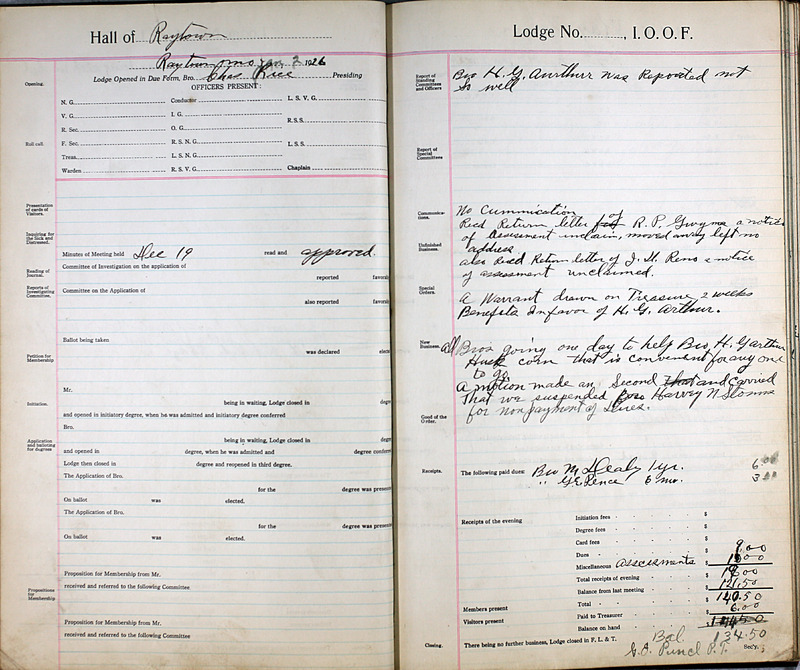 Hall of Raytown
Raytown Mo Jan 2 1926
Lodge Opened in Due Form, Bro. Chas Rice Presiding
Opening.
OFFICERS PRESENT:
N. G. Conductor L. S. V. G.
V. G. I. G. R. S. S.
R. Sec. O. G.
Roll call. F. Sec. R. S. N. G. L. S. S.
Treas. L. S. N. G.
Warden R. S. V. G. Chaplain
Presentation
of cards of
Visitors.
Inquiring for
the Sick and
Distressed.
Minutes of Meeting held Dec 19 read and approved
Reading of
Journal.
Committee of Investigation on the application of
reported favora
Reports of
Investigating
Committee.
Committee on the Application of
also reported favora
Ballot being taken
was declared elec
Petition for
Membership
Mr.
Initiation. being in waiting, Lodge closed in degr
and opened in initiatory degree, when he was admitted and initiatory degree conferred
Bro.
Application
and balloting
for degrees
being in waiting, Lodge closed in degr
and opened in degree, when he was admitted and degree confer
Lodge then closed in degree and reopened in third degree.
The Application of Bro.
for the degree was presen
On ballot was elected.
The Application of Bro.
for the degree was presen
On ballot was elected.
Proposition for Membership from Mr.
Propositions
for
Membership
received and referred to the following Committee
Proposition for Membership from Mr.
received and referred to the following Committee
Lodge No. , I. O. O. F.
Report of
Standing
Committees
and Officers
Bro H. G. Aurthur was Reported not
So well
Report of
Special
Committees
Communica-
tions.
No Cummication
Recd Return letter of R. P. Gwynn a notice
of assessment unclaim, moved away left no
address
Unfinished
Business.
also Recd Return letter of J. H. Reno a notice
of assessment unclaimed.
Special
Orders.
A Warrant drawn on Treasure 2 weeks
Benefits infavor of H. G. Arthur.
New
Business.
All Bros going one day to help Bro. H. G arthur
Husk corn that is convenent for any one
to go
A motion made an Second that and Carried
That we suspended Bro Harvey N Sloanne
for non payment of Dues.
Good of the
Order.
Receipts. The following paid dues: Bro M. Healy 1 yr. 6.00
" G. E. Pence 6 mo. 3.00
Receipts of the evening Initiation fees $
Degree fees $
Card fees $
Dues $ 9.00
Miscellaneous assessments $ 10 00
Total receipts of evening $ 19 00
Balance from last meeting $ 121.50
Total $ 140.50
Members present Paid to Treasurer $ 6.00
Visitors present Balance on hand $
Bal 134.50
Closing. There being no further business, Lodge closed in F. L. & T.
Sec'y.